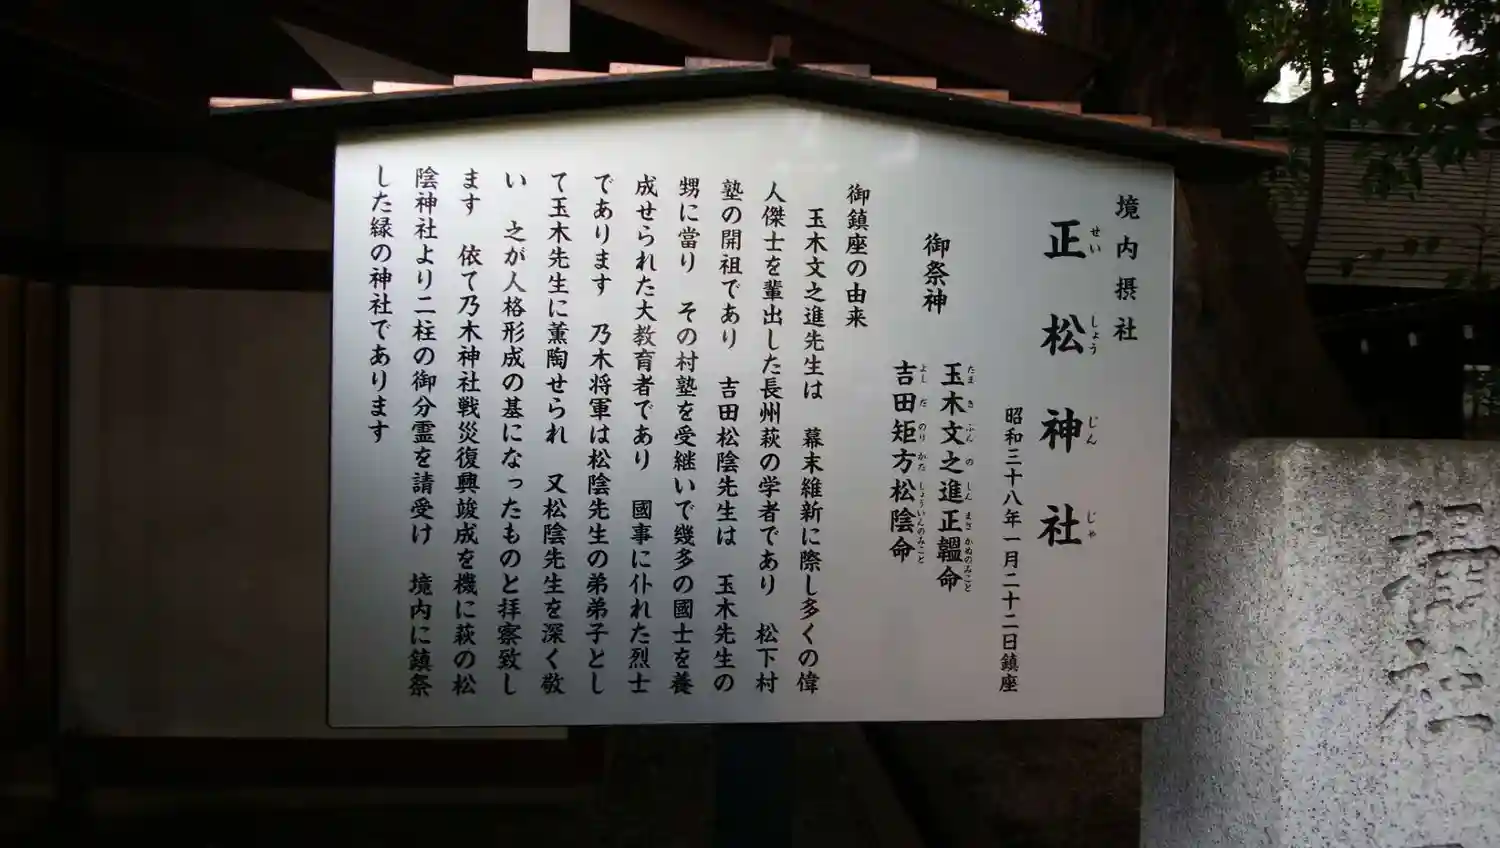 境内摂社
正松神社
せいしょうじんじゃ
昭和三十八年一月二十二日鎮座
御祭神
玉木文之進正韞命
たまきぶんのしんまさかぬのみこと
吉田矩方松陰命
よしだのりかたしょういんのみこと
御鎮座の由来
玉木文之進先生は 幕末維新に際し多くの偉
人傑士を輩出した長州萩の学者であり 松下村
塾の開祖であり 吉田松陰先生は 玉木先生の
甥に當り その村塾を受継いで幾多の國士を養
成せられた大教育者であり 國事に仆れた烈士
であります 乃木将軍は松陰先生の弟弟子とし
て玉木先生に薫陶せられ 又松陰先生を深く敬
い 之が人格形成の基になったものと拝察致し
ます 依て乃木神社戦災復興竣成を機に萩の松
陰神社より二柱の御分霊を請受け 境内に鎮祭
した縁の神社であります
摂社